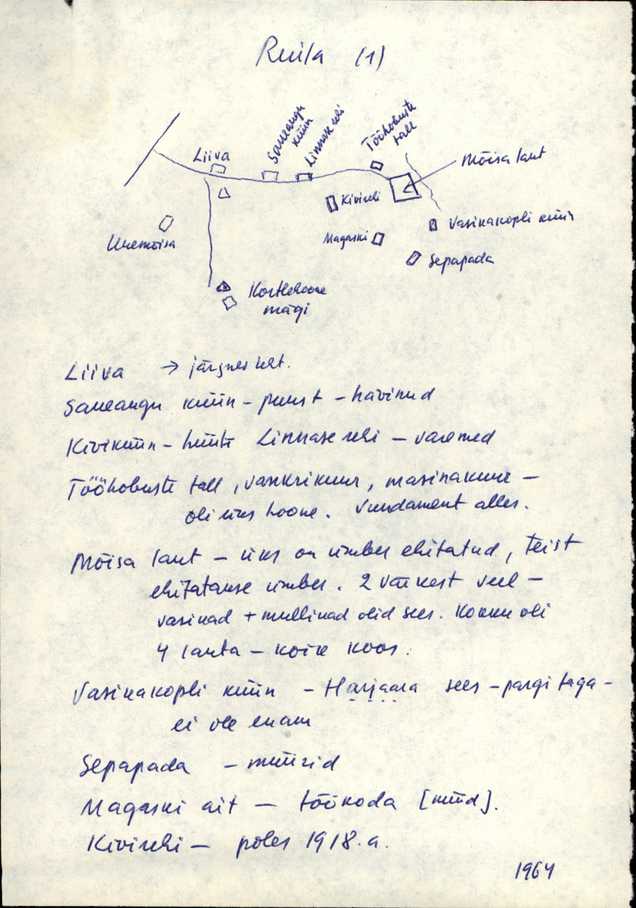 Ruila (1)
Saueaugu
küün
Linnaserehi
Tööhobuste
tall
Liiva
Mõisa laut
Kivirehi
Vasikakopli küün
Unemõisa
Magaski
Sepapada
Kortlehoone
mägi
Liiva → järgneb leht.
Saueaugu küün - puust - hävinud
Kiviküün - hüüti Linnaserehi - varemed
Tööhobuste tall, vankrikuur, masinakuur -
oli üks hoone. Vundament alles.
Mõisa laut - üks on ümber ehitatud, teist
ehitatakse ümber. 2 väikest veel -
vasikad + mullikad olid sees. Kokku oli
4 lauta - kõik koos.
Vasikakopli küün - Harjaara sees - pargi taga -
ei ole enam
Sepapada - müürid
Magaski ait - töökoda [nüüd].
Kivirehi - põles 1918.a.
1964